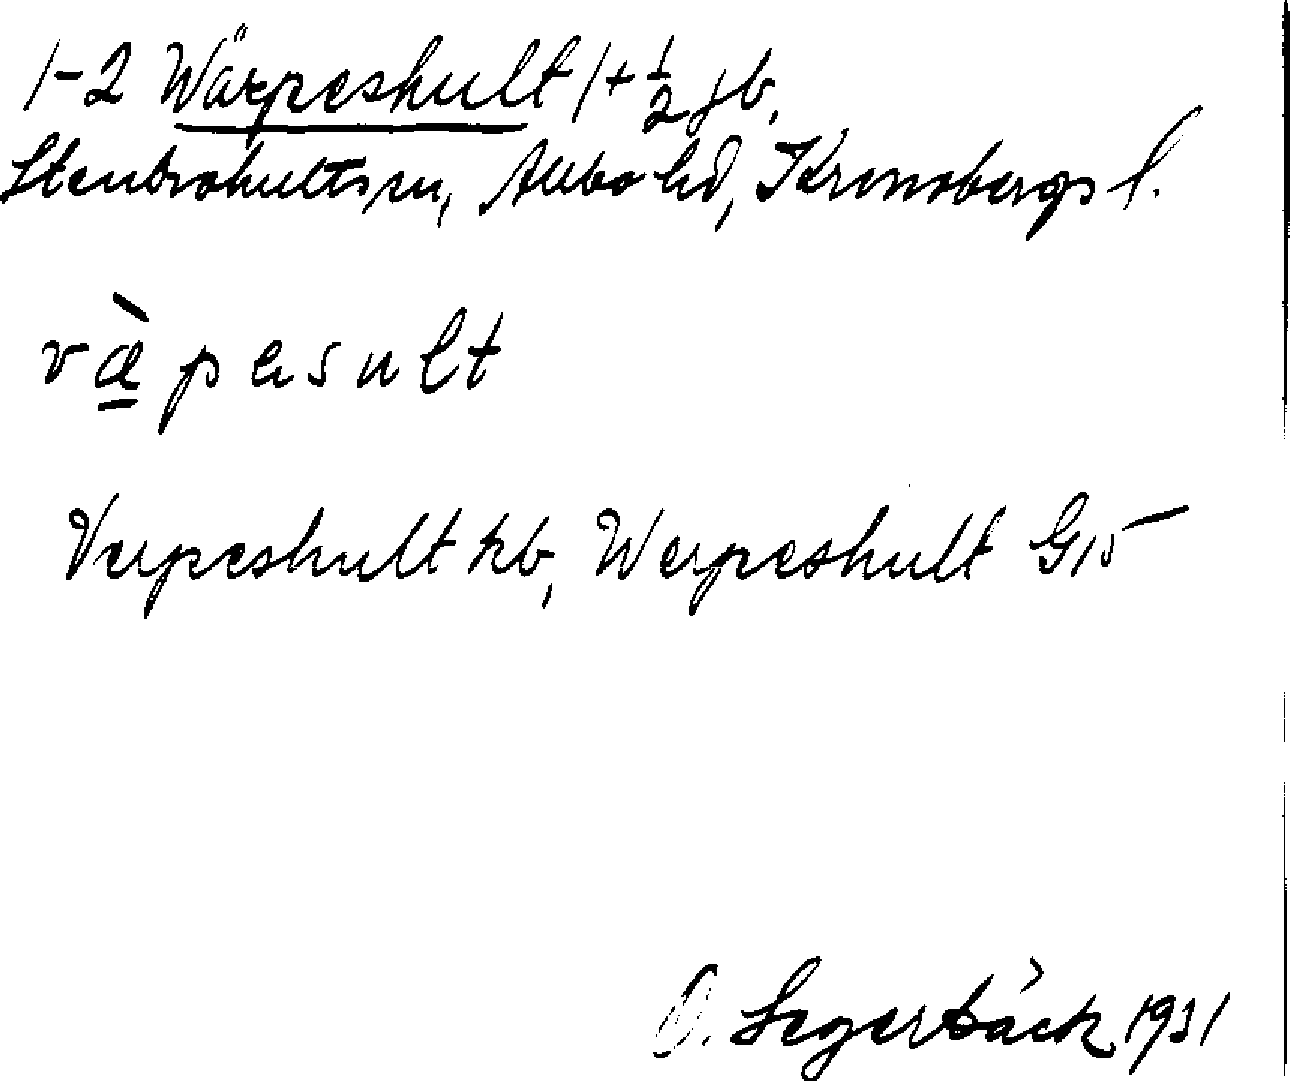 1-2 Wärpeshult 1+½ jb.
Stenbrohults sn, Allbo hd, Kronobergs l.
væ̀pesult
Verpeshult kb, Werpeshult G15
O. Segerbäck 1931